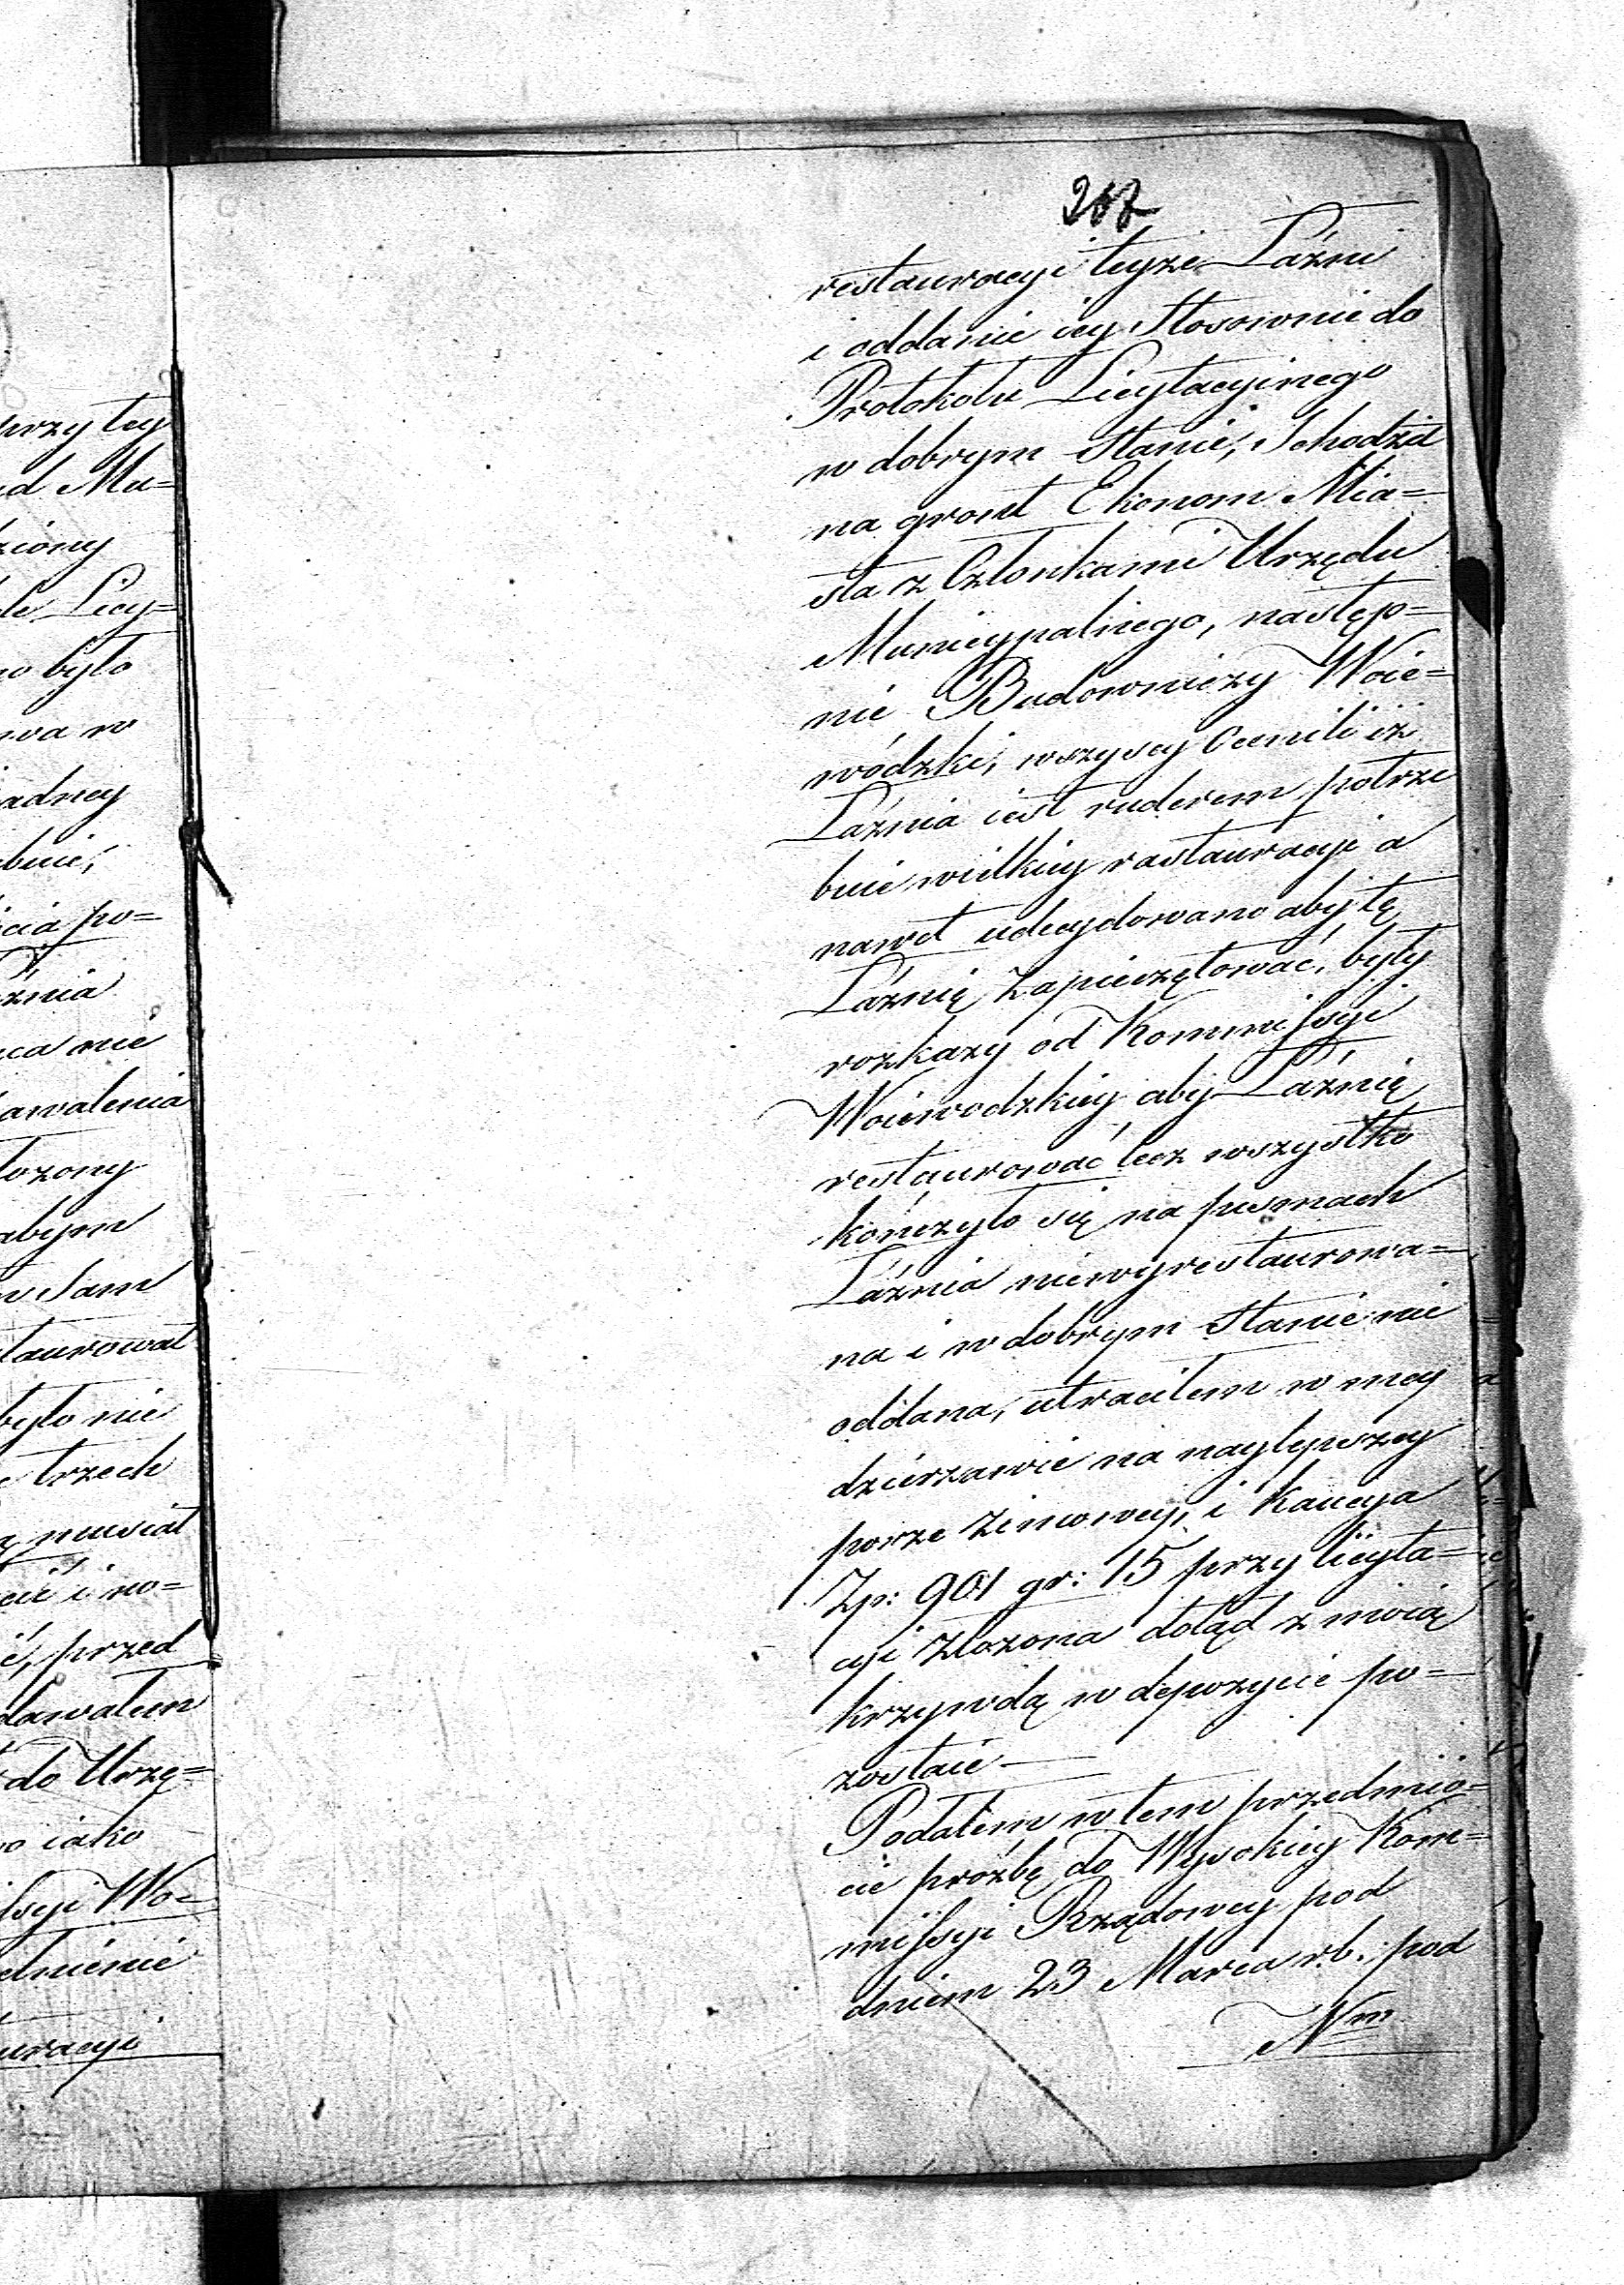 przy tey
d Mu=
ziony
le Licy=
o było
wa w
adney
buie,
cia po=
źnia
ca nie
awalenia
łożony
abym
Sam
taurował
było nie
trzech
musiał
cić i wo=
ć, przed
dawałem
do Urzę=
o iako
ssyi Wo=
ełnienie
uracyi
restauracyi teyże Łaźni
i oddanie iey Stosownie do
Protokołu Licytacyinego
w dobrym Stanie, Schodził
na gront Ekonom Mia=
sta z Członkami Urzędu
Municypalnego, następ=
nie Budowniczy Woie=
wódzki, wszyscy Cenili iż
Łaźnia iest ruderem potrze
buie wielkiey rastauracyi a
nawet udecydowano aby tę
Łaźnię Zapieczętować, były
rozkazy od Kommissyi
Woiewodzkiey aby Łaźnię
restaurować lecz wszystko
kończyło się na pismach
Łaźnia niewyrestaurowa=
na i w dobrym Stanie nie
oddana, utraciłem w mey
dzierzawie na naylepszey
porze Zimowey, i Kaucya
Zp: 901 gr: 15 przy licyta=
cyi Złożona dotąd z moią
krzywdą w depozycie po=
zostaie —
Podałem w tem przedmio=
cie proźbę do Wysokiey Kom=
missyi Rządowey pod
dniem 23 Marca r.b. pod
Nm